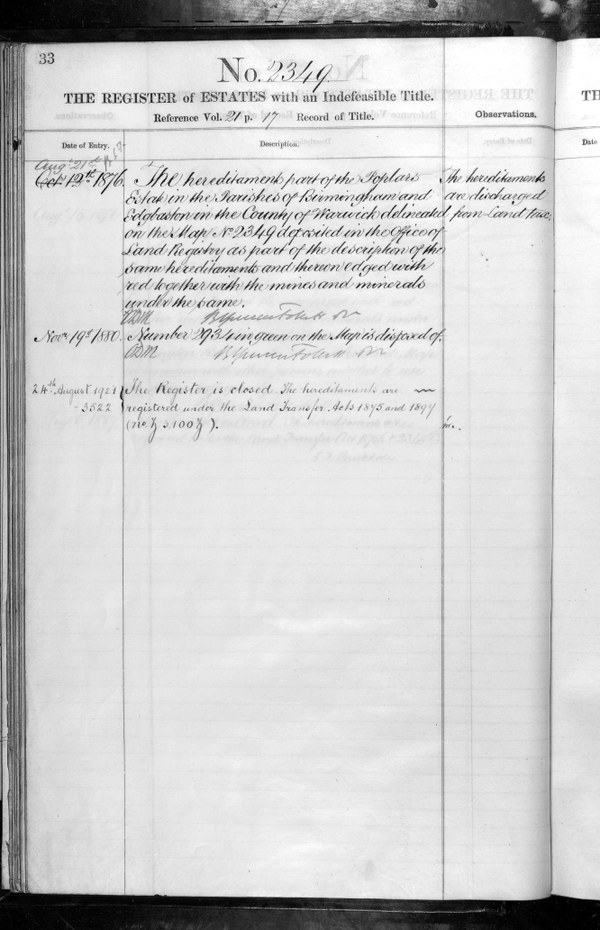 33
No. 2349
THE REGISTER of ESTATES with an Indefeasible Title.
Reference Vol. 21 p. 17 Record of Title.
Observations.
Date of Entry.
Description.
Augt 21st
Oct 12th 1876.
The hereditaments part of the Poplars
Estate in the Parishes of Birmingham and
Edgbaston in the County of Warwick delineated
on the Map No 2349 deposited in the Office of
Land Registry as part of the description of the
same hereditaments and thereon edged with
red together with the mines and minerals
under the same.
The hereditaments
are discharged
from Land Tax.
Novr 19th 1880.
Number 2934 in green on the Map is disposed of.
24th August 1921
3522
The Register is closed. The hereditaments are
registered under the Land Transfer Acts 1875 and 1897
TH
Date